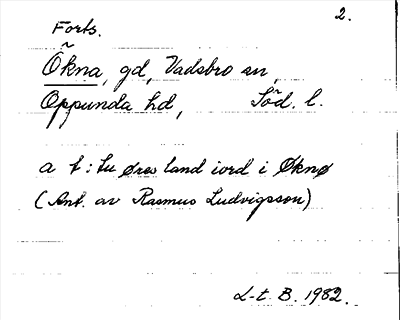 2.
Forts.
Õkna, gd, Vadsbro sn,
Oppunda hd, Söd. l.
a f: tu øres land iord i Øknø
(Ant. av Rasmus Ludvigsson)
L-t B. 1982.